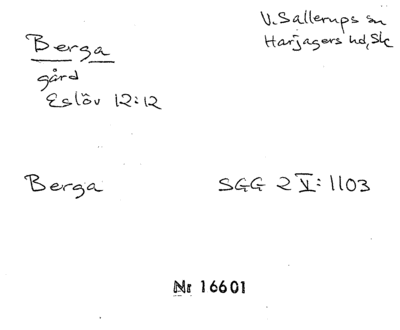 V. Sallerups sn
Harjagers hd, Sk
Berga
gård
Eslöv 12:12
Berga SGG 2 V: 1103
Nr 16601